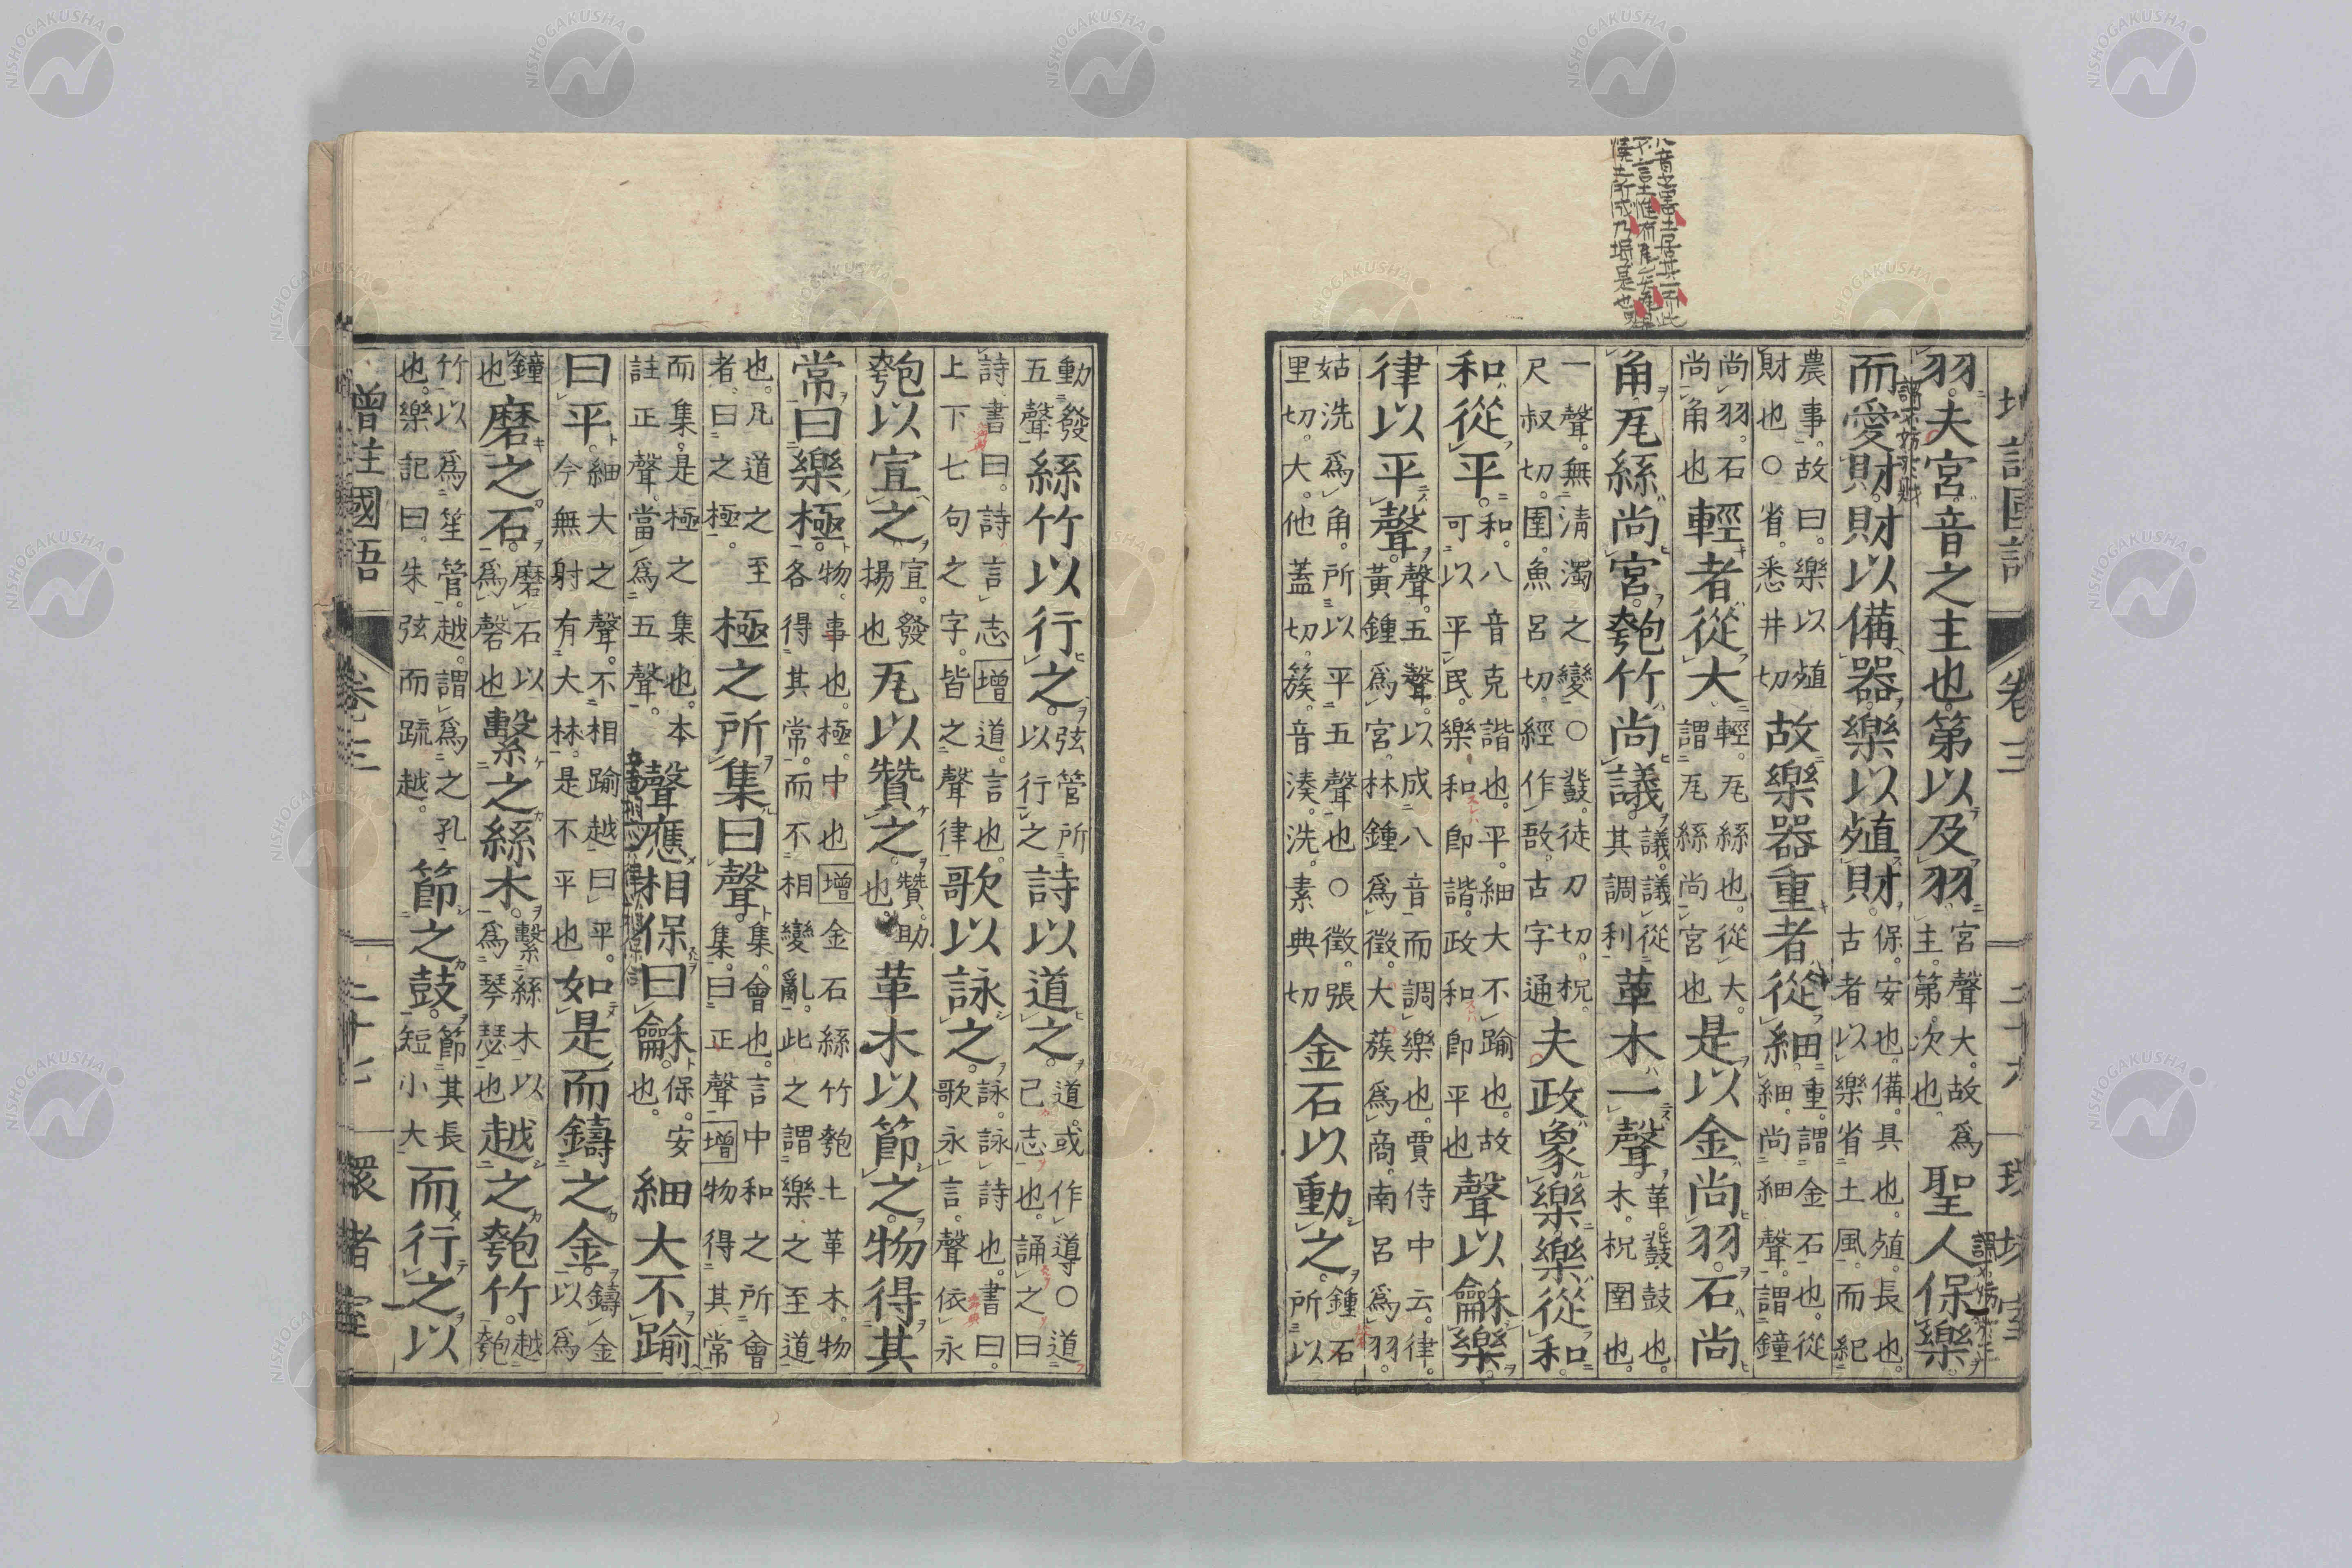 羽。夫宮音之主也。第以及羽宮聲大。故爲主。第。次也。聖人保樂
而愛財。財以備器。樂以殖財保。安也。備。具也。殖。長也。古者以樂省土風。而紀
農事。故曰。樂以殖財也。○省。悉井切故樂器重者從細重。謂金石也。從細。尚細聲。謂鐘
尚羽。石尚角也輕者從大輕。瓦絲也。從大。謂瓦絲尚宮也。是以金尚羽。石尚
角。瓦絲尚宮。匏竹尚議議。議從其調利革木一聲革。鼗鼓也。木。柷圉也。
一聲。無淸濁之變○鼗。徒刀切。柷。尺叔切。圉。魚呂切。經作敔。古字通夫政象樂。樂從和
和從平。和。八音克諧也。平。細大不踰也。故可以平民。樂和即諧。政和即平也聲以龢樂。
律以平聲。聲。五聲。以成八音而調樂也。賈侍中云。律。黃鍾爲宮。林鍾爲徵。大蔟爲商。南呂爲羽。
姑洗爲角。所以平五聲也○徵。張里切。大。他蓋切。簇。音湊。洗。素典切金石以動之。鍾石所以
動發五聲絲竹以行之。弦管所以行之詩以道之。道。或作導○道己志也。誦之曰
詩。書曰。詩言志增道。言也。上下七句之字。皆之聲律歌以詠之。詠。詠詩也。書曰。歌永言。聲依永
匏以宣之宣。發揚也瓦以贊之。贊。助也。革木以節之。物得其
常曰樂極。物。事也。極。中也增金石絲竹匏土革木。物各得其常。而不相變亂。此之謂樂之至道
也。凡道之至者。曰之極。極之所集曰聲。集。會也。言中和之所會集。曰正聲增物得其常
而集。是極之集也。本註正聲。當爲五聲。聲應相保曰龢保。安也。細大不踰
曰平。細大之聲。不相踰越曰平。今無射有大林。是不平也如是而鑄之金。鑄金以爲
鐘也磨之石。磨石以爲磬也繫之絲木。繫絲木以爲琴瑟也越之匏竹。越匏
竹以爲笙管。越。謂爲之孔也。樂記曰。朱弦而疏越。節之鼓。節其長短小大而行之以
增註國語
卷三
二十七